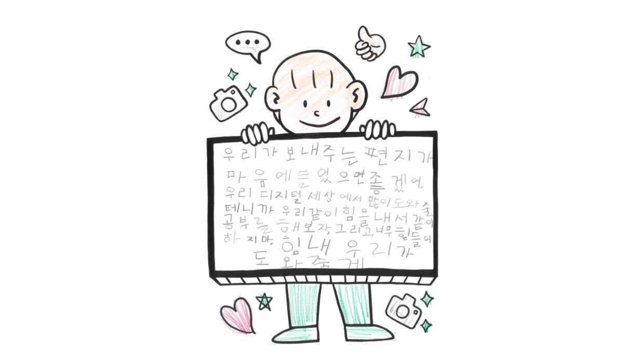 우리가 보내주는 편지가
마음에 들었으면 좋겠어,
우리 디지털 세상에서 많이 도와줄
테니까 우리같이 힘을 내서 같이
공부를 해보자, 그리고 너무 힘들어
하지마, 힘내 우리가
도와줄게